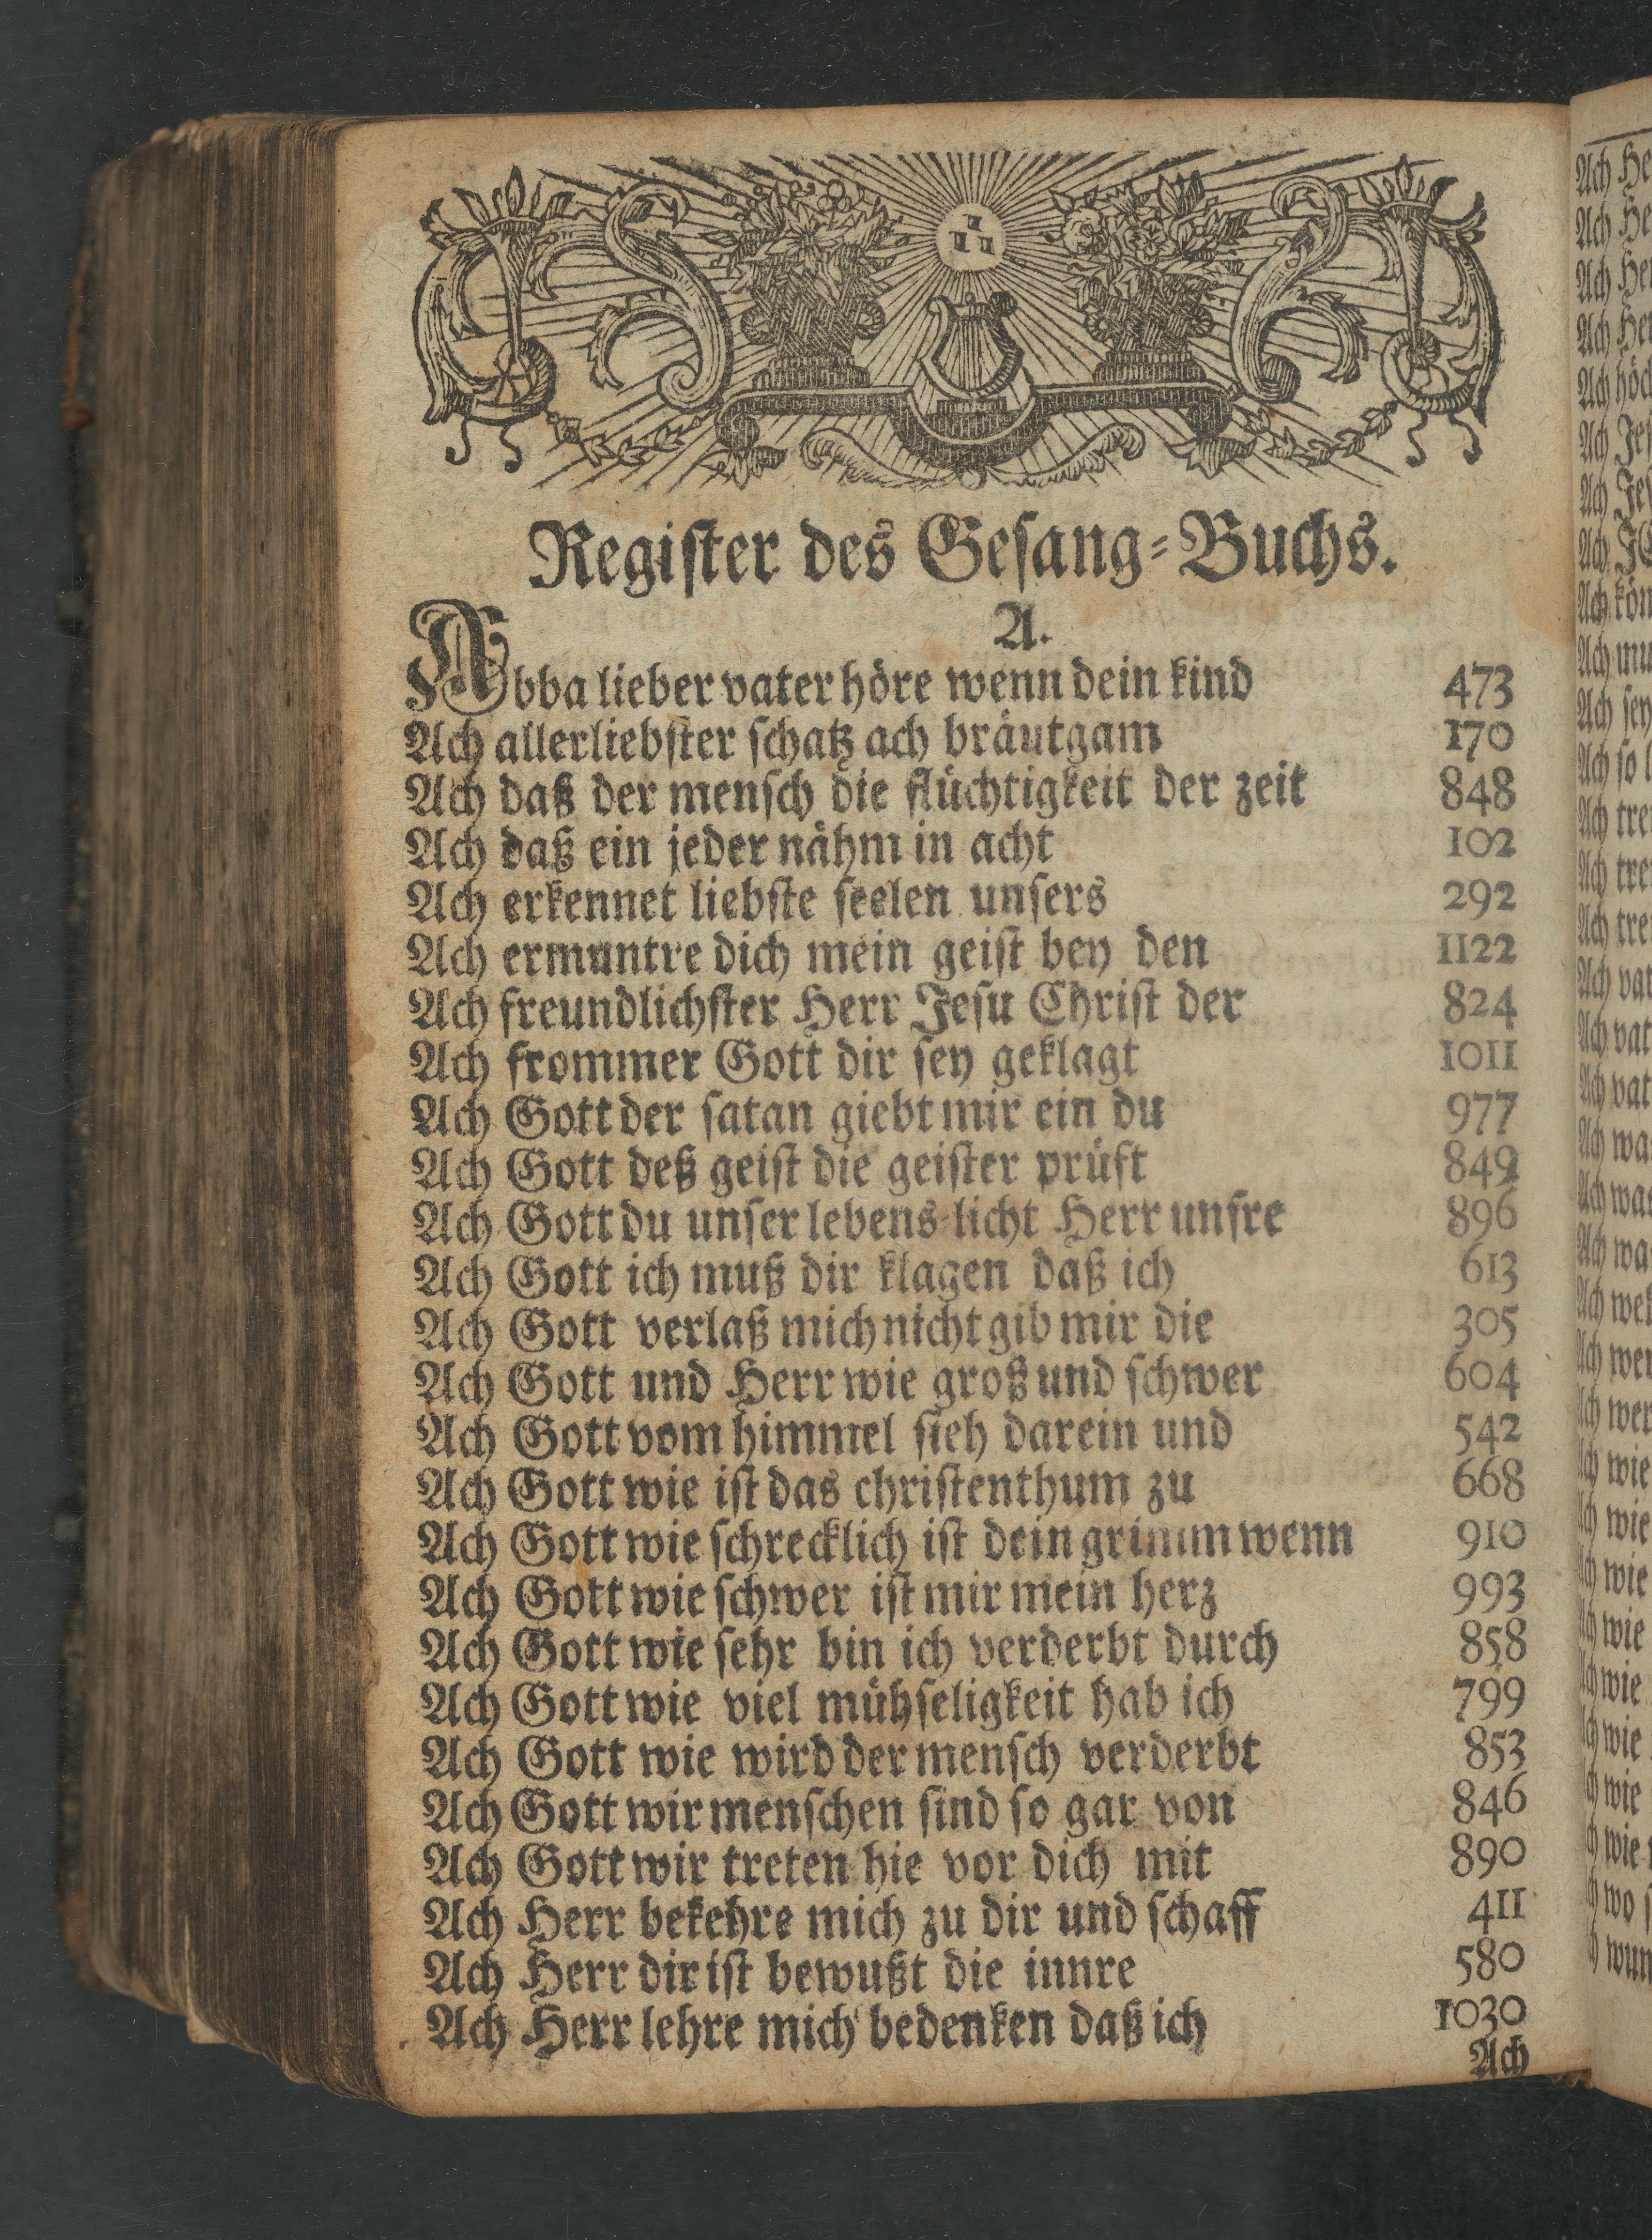 Register des Gesang-Buchs.
A.
Abba lieber vater höre wenn dein kind 473
Ach allerliebster schatz ach bräutgam 170
Ach daß der mensch die flüchtigkeit der zeit 848
Ach daß ein jeder nähm in acht 102
Ach erkennet liebste seelen unsers 292
Ach ermuntre dich mein geist bey den 1122
Ach freundlichster Herr Jesu Christ der 824
Ach frommer Gott dir sey geklagt 1011
Ach Gott der satan giebt mir ein du 977
Ach Gott deß geist die geister prüft 849
Ach Gott du unser lebens-licht Herr unsre 896
Ach Gott ich muß dir klagen daß ich 613
Ach Gott verlaß mich nicht gib mir die 305
Ach Gott und Herr wie groß und schwer 604
Ach Gott vom himmel sieh darein und 542
Ach Gott wie ist das christenthum zu 668
Ach Gott wie schrecklich ist dein grimm wenn 910
Ach Gott wie schwer ist mir mein herz 993
Ach Gott wie sehr bin ich verderbt durch 858
Ach Gott wie viel mühseligkeit hab ich 799
Ach Gott wie wird der mensch verderbt 853
Ach Gott wir menschen sind so gar von 846
Ach Gott wir treten hie vor dich mit 890
Ach Herr bekehre mich zu dir und schaff 411
Ach Herr dir ist bewußt die innre 580
Ach Herr lehre mich bedenken daß ich 1030
Ach